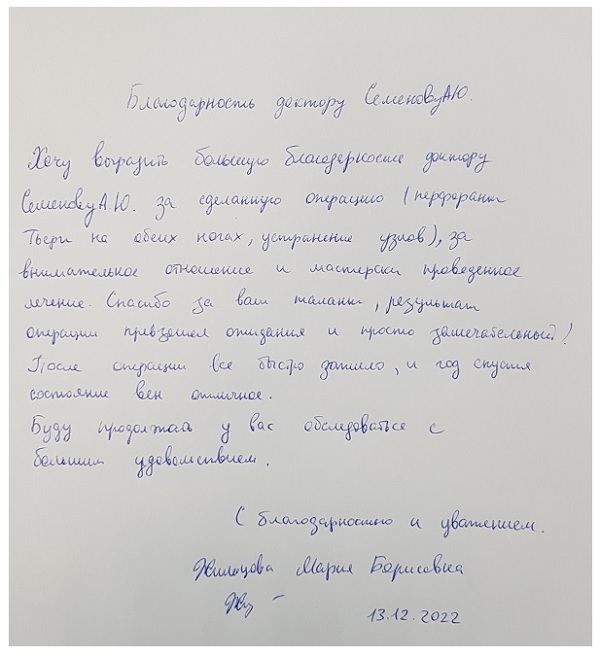 Благодарность доктору Семенову А.Ю.
Хочу выразить большую благодарность доктору
Семенову А.Ю. за сделанную операцию (перфоранты
на обеих ногах, устранение узлов), за
внимательное отношение и мастерски проведенное
лечение. Спасибо за ваш талант, результат
операции превзошел ожидания и просто замечательный!
После операции все быстро зажило, и год спустя
состояние вен отличное.
Буду продолжать у вас обследоваться с
большим удовольствием.
С благодарностью и уважением.
Мария Борисовна
13.12.2022